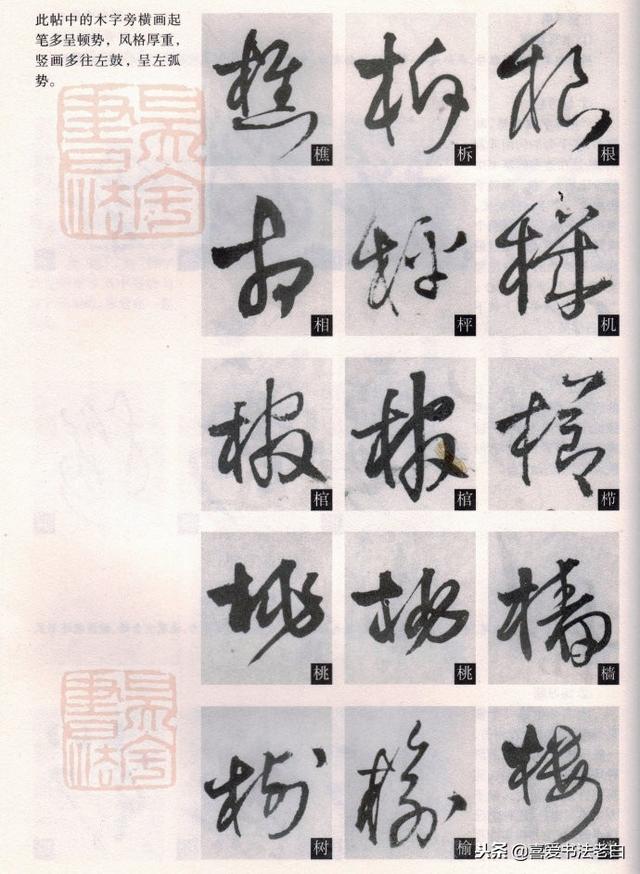 此帖中的木字旁横画起
笔多呈顿势，风格厚重，
竖画多往左鼓，呈左弧
势。
樵 柝 根
相 枰 机
棺 棺 栉
桃 桃 樯
树 榆
头条 @喜爱书法老白